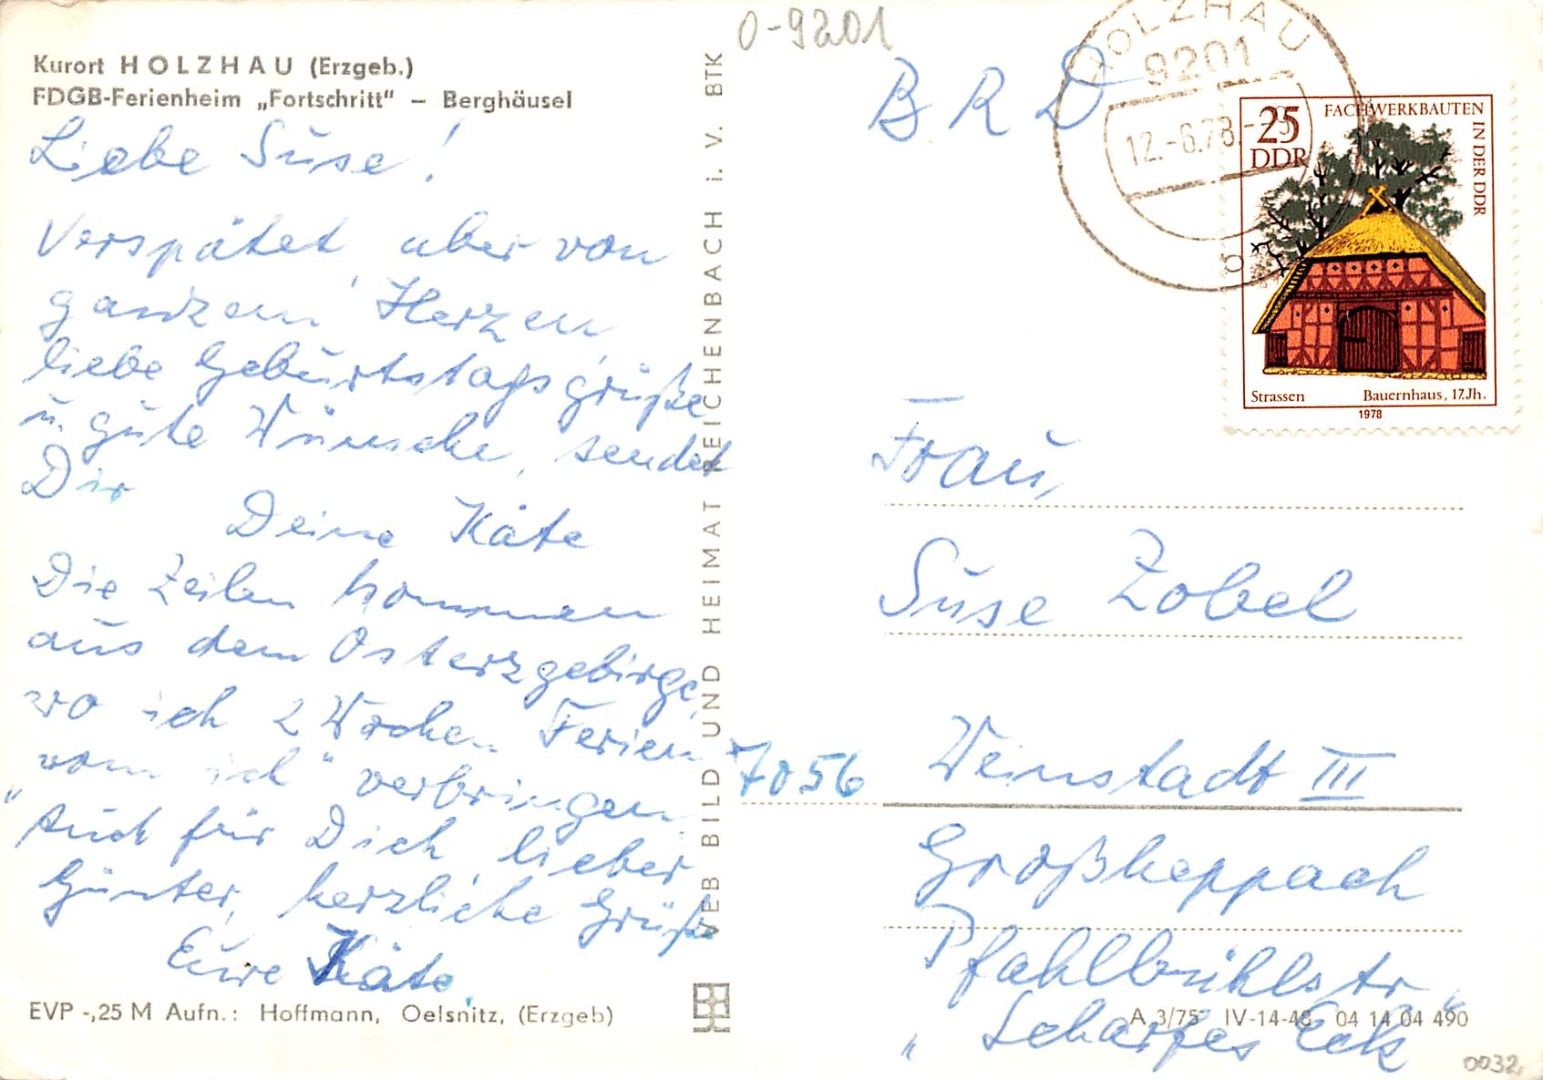 Kurort HOLZHAU (Erzgeb.)
FDGB-Ferienheim „Fortschritt" – Berghäusel
Liebe Suse!
Verspätet, aber von
ganzem Herzen
liebe Geburtstagsgrüße
u. gute Wünsche, sendet
Dir
Deine Käte
Die Zeilen kommen
aus dem Osterzgebirge,
wo ich 2 Wochen Ferien
„vom ich" verbringen
Auch für Dich, lieber
Günter, herzliche Grüße
Eure Käte.
EVP -,25 M Aufn.: Hoffmann, Oelsnitz, (Erzgeb)
VEB BILD UND HEIMAT REICHENBACH i. V. BTK
0-9201
BRD
HOLZHAU
9201
12.-6.78
25
DDR
FACHWERKBAUTEN
IN DER DDR
Strassen Bauernhaus, 17.Jh.
1978
Frau,
Suse Zobel
7056 Weinstadt III
Großheppach
Pfahlbühlstr.
„Scharfes Eck"
A 3/75 IV-14-48 04 14 04 490
0032